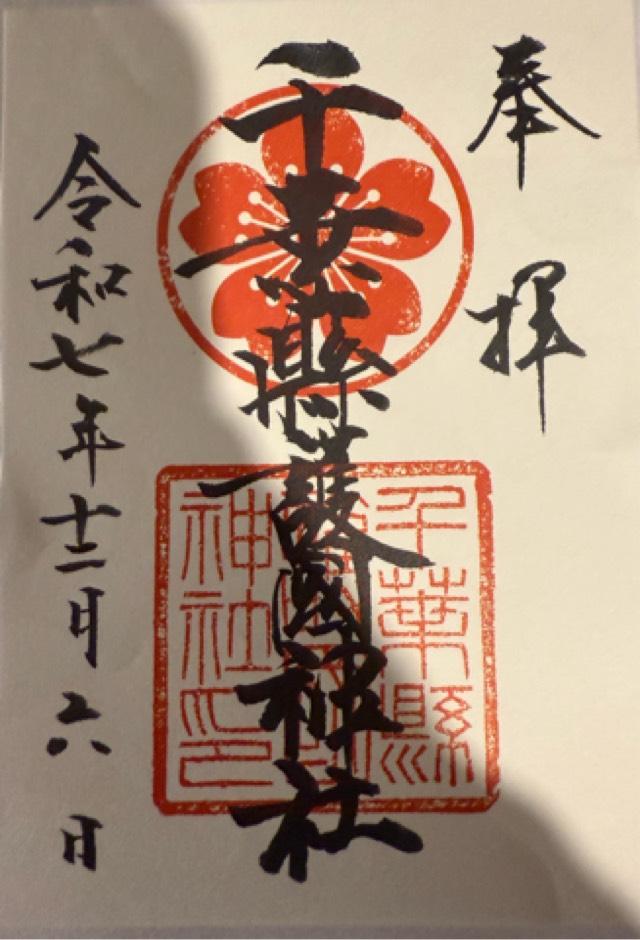 奉拝
千葉縣護國神社
千葉縣
護國
神社印
令和七年十二月六日